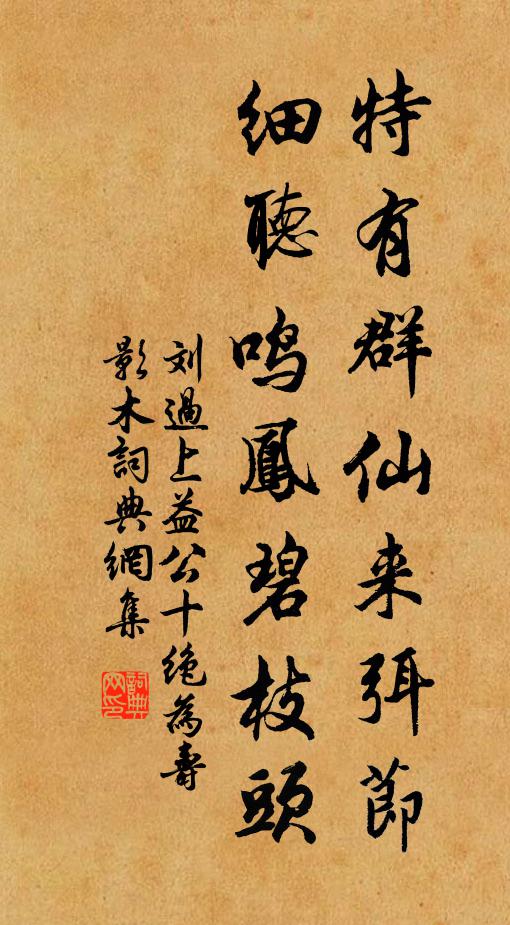 特有群仙来弭節
细聴鸣鳳碧枝頭
刘過上益公十绝為壽
影木詞典網集
詞典网印